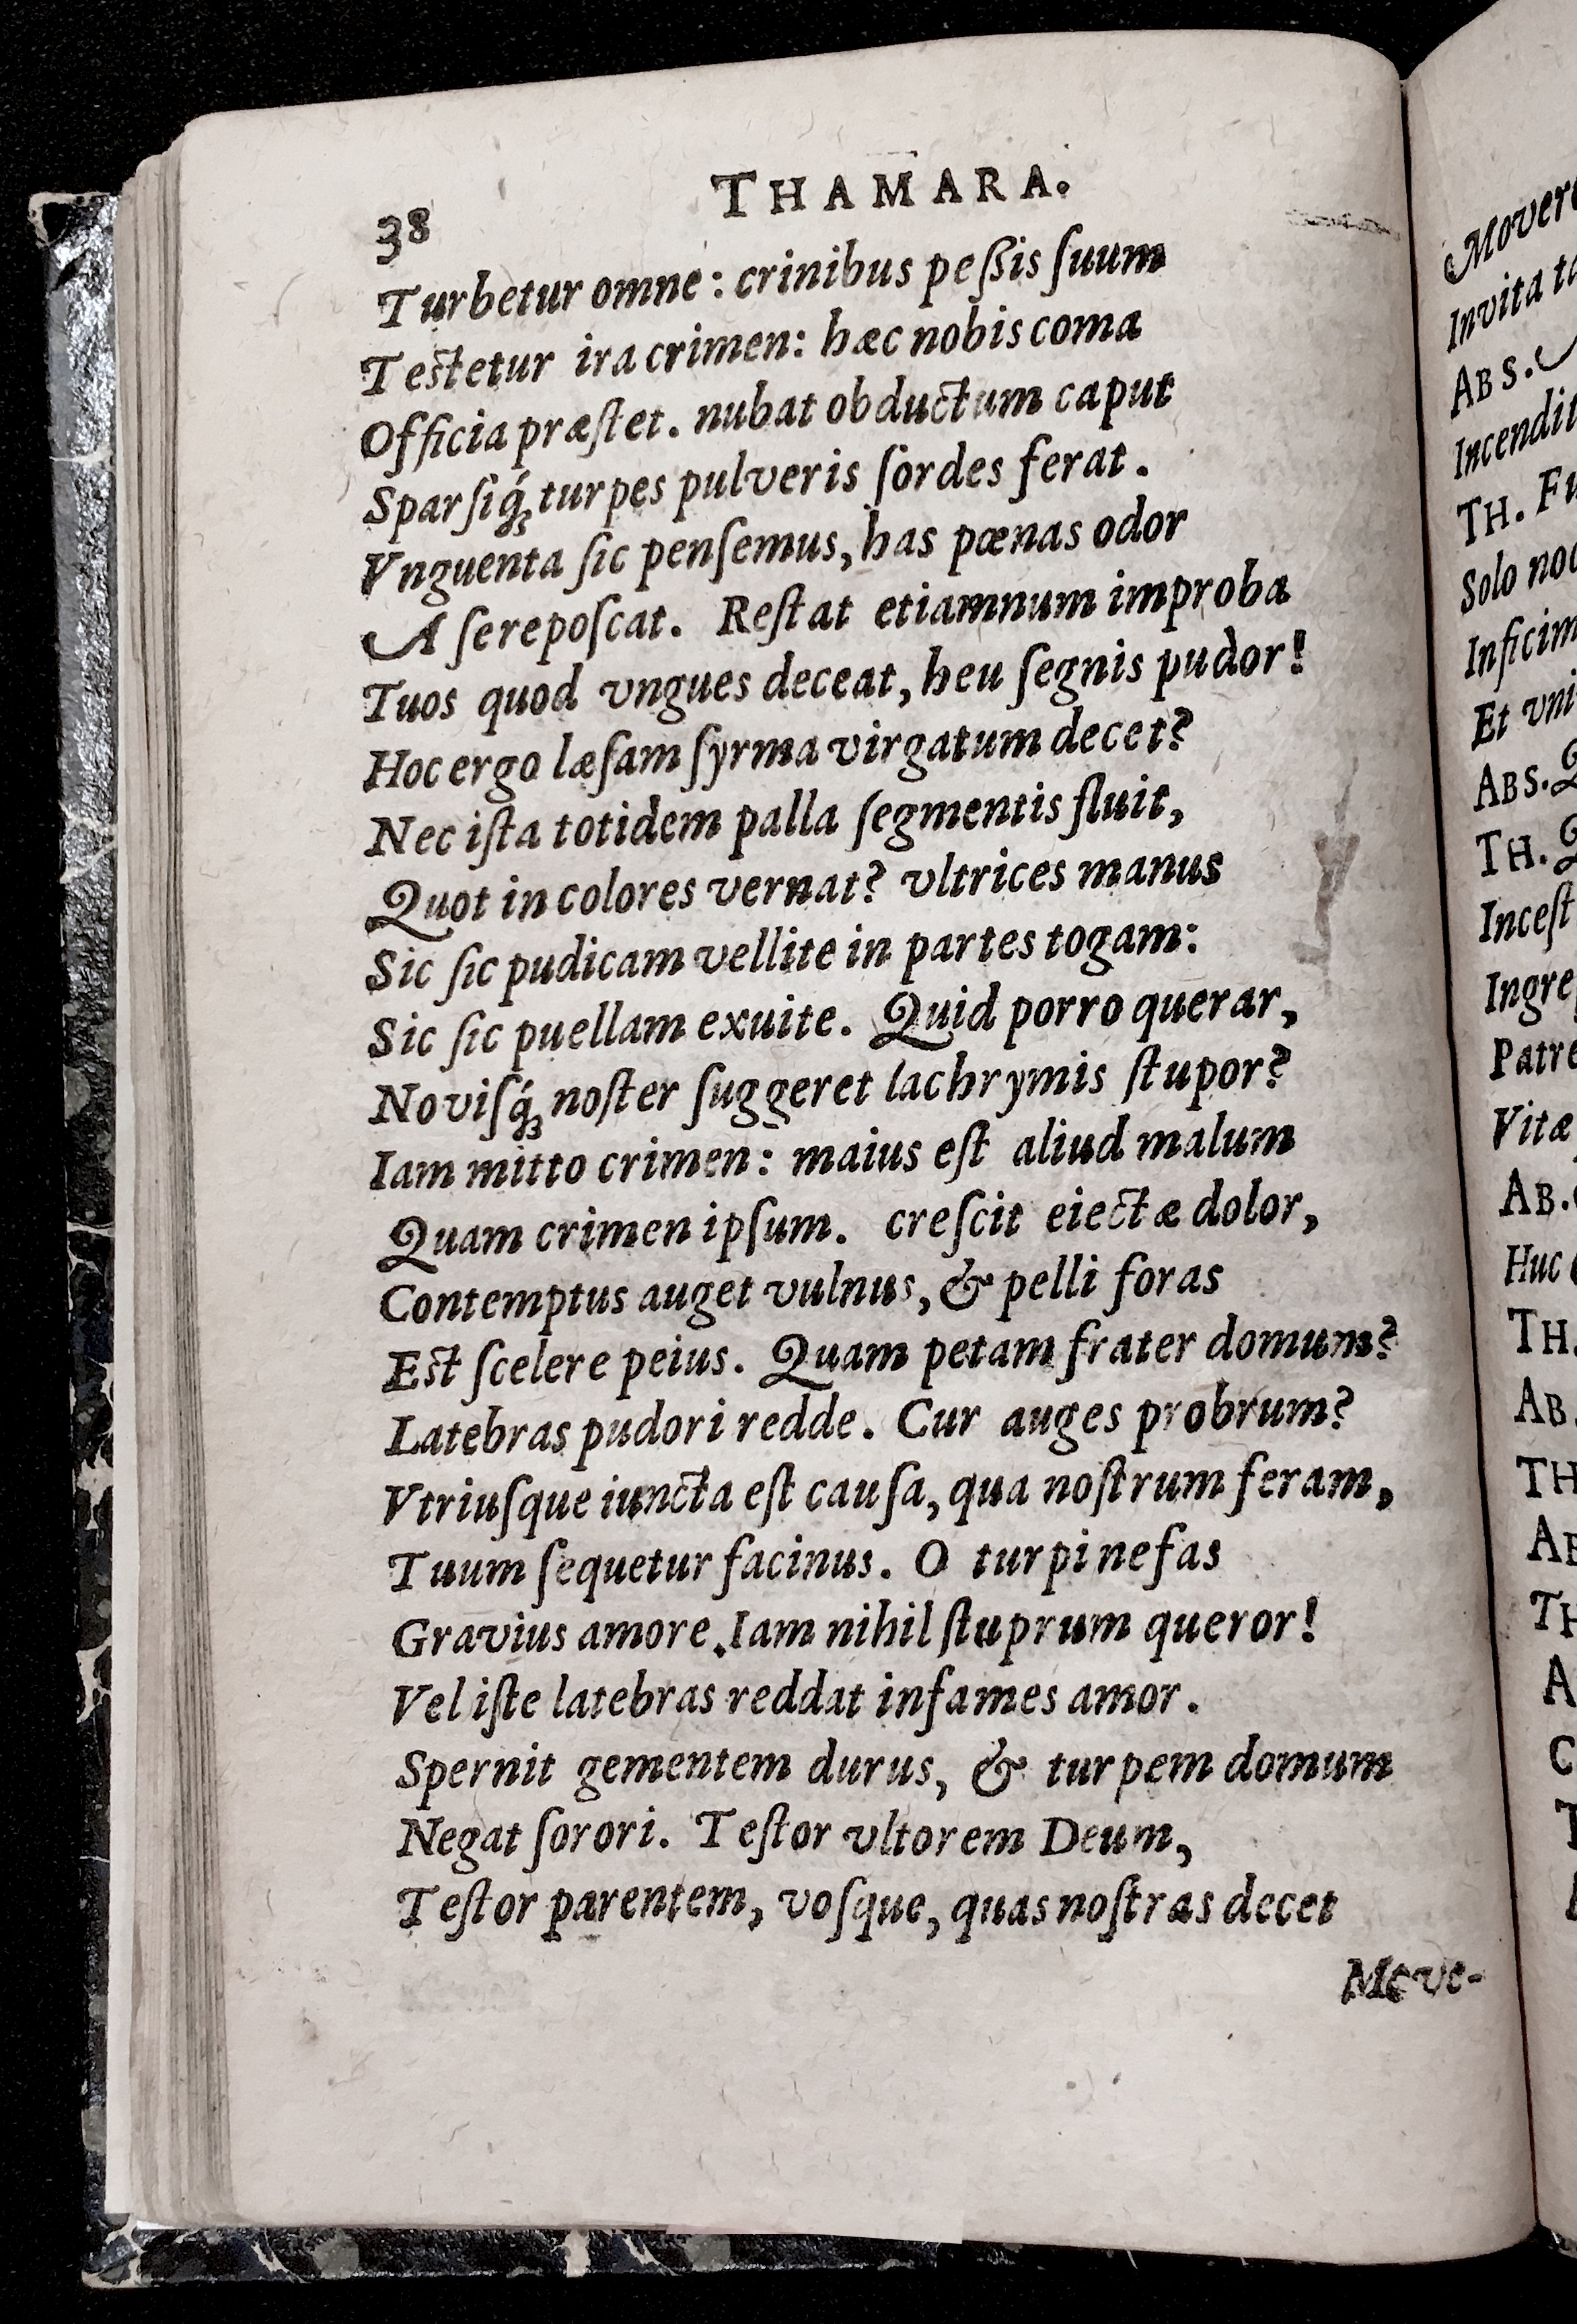 THAMARA.
38
Turbetur omne: crinibus peſſis ſuum
Teſtetur ira crimen: hæc nobis coma
Officia præſtet. nubat obductum caput
Sparſiq́ꝫ turpes pulveris ſordes ferat.
Vnguenta ſic penſemus, has pœnas odor
A ſe repoſcat. Reſtat etiamnum improba
Tuos quod vngues deceat, heu ſegnis pudor!
Hoc ergo læſam ſyrma virgatum decet?
Nec iſta totidem palla ſegmentis fluit,
Quot in colores vernat? vltrices manus
Sic ſic pudicam vellite in partes togam:
Sic ſic puellam exuite. Quid porro querar,
Noviſq́ꝫ noſter ſuggeret lachrymis ſtupor?
Iam mitto crimen: maius eſt aliud malum
Quam crimen ipſum. creſcit eiectæ dolor,
Contemptus auget vulnus, & pelli foras
Eſt ſcelere peius. Quam petam frater domum?
Latebras pudori redde. Cur auges probrum?
Vtriuſque iuncta eſt cauſa, qua noſtrum feram,
Tuum ſequetur facinus. O turpi nefas
Gravius amore. Iam nihil ſtuprum queror!
Vel iſte latebras reddat infames amor.
Spernit gementem durus, & turpem domum
Negat ſorori. Teſtor vltorem Deum,
Teſtor parentem, voſque, quas noſtras decet
Move-
Invita
ABS.
TH.
Solo
Et
ABS.
TH.
Vitæ
AB.
Huc
TH.
AB.
TH